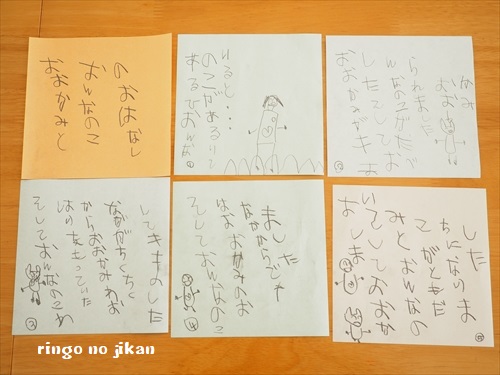 おおかみと
おんなのこ
のおはなし
あるひおんな
のこがあるいて
いると・・・
①
おおかみがきま
したそしてお
んなのこがたべ
られました
おお
かみ
②
そしておんなのこわ
はりをもっていた
からおおかみのお
なかがちくちく
してきました
③
そしておんなのこ
おかみのお
なかからでき
ました
④
そしておおか
みとおんなの
こがともだ
ちになりま
した
おしま
⑤
ringo no jikan